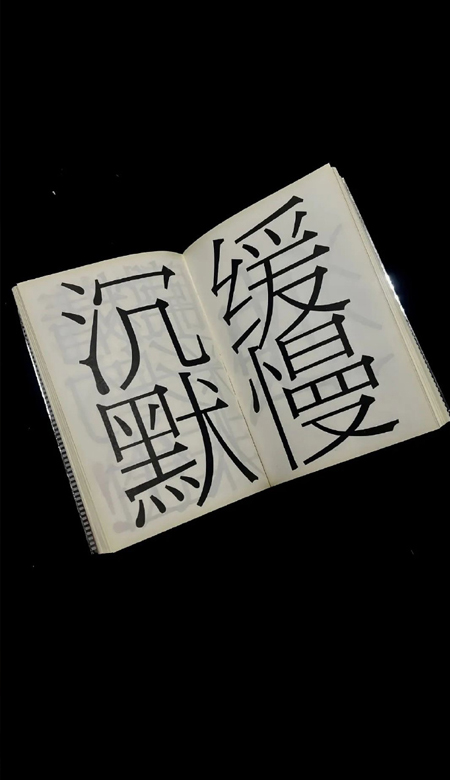 沉默
缓慢